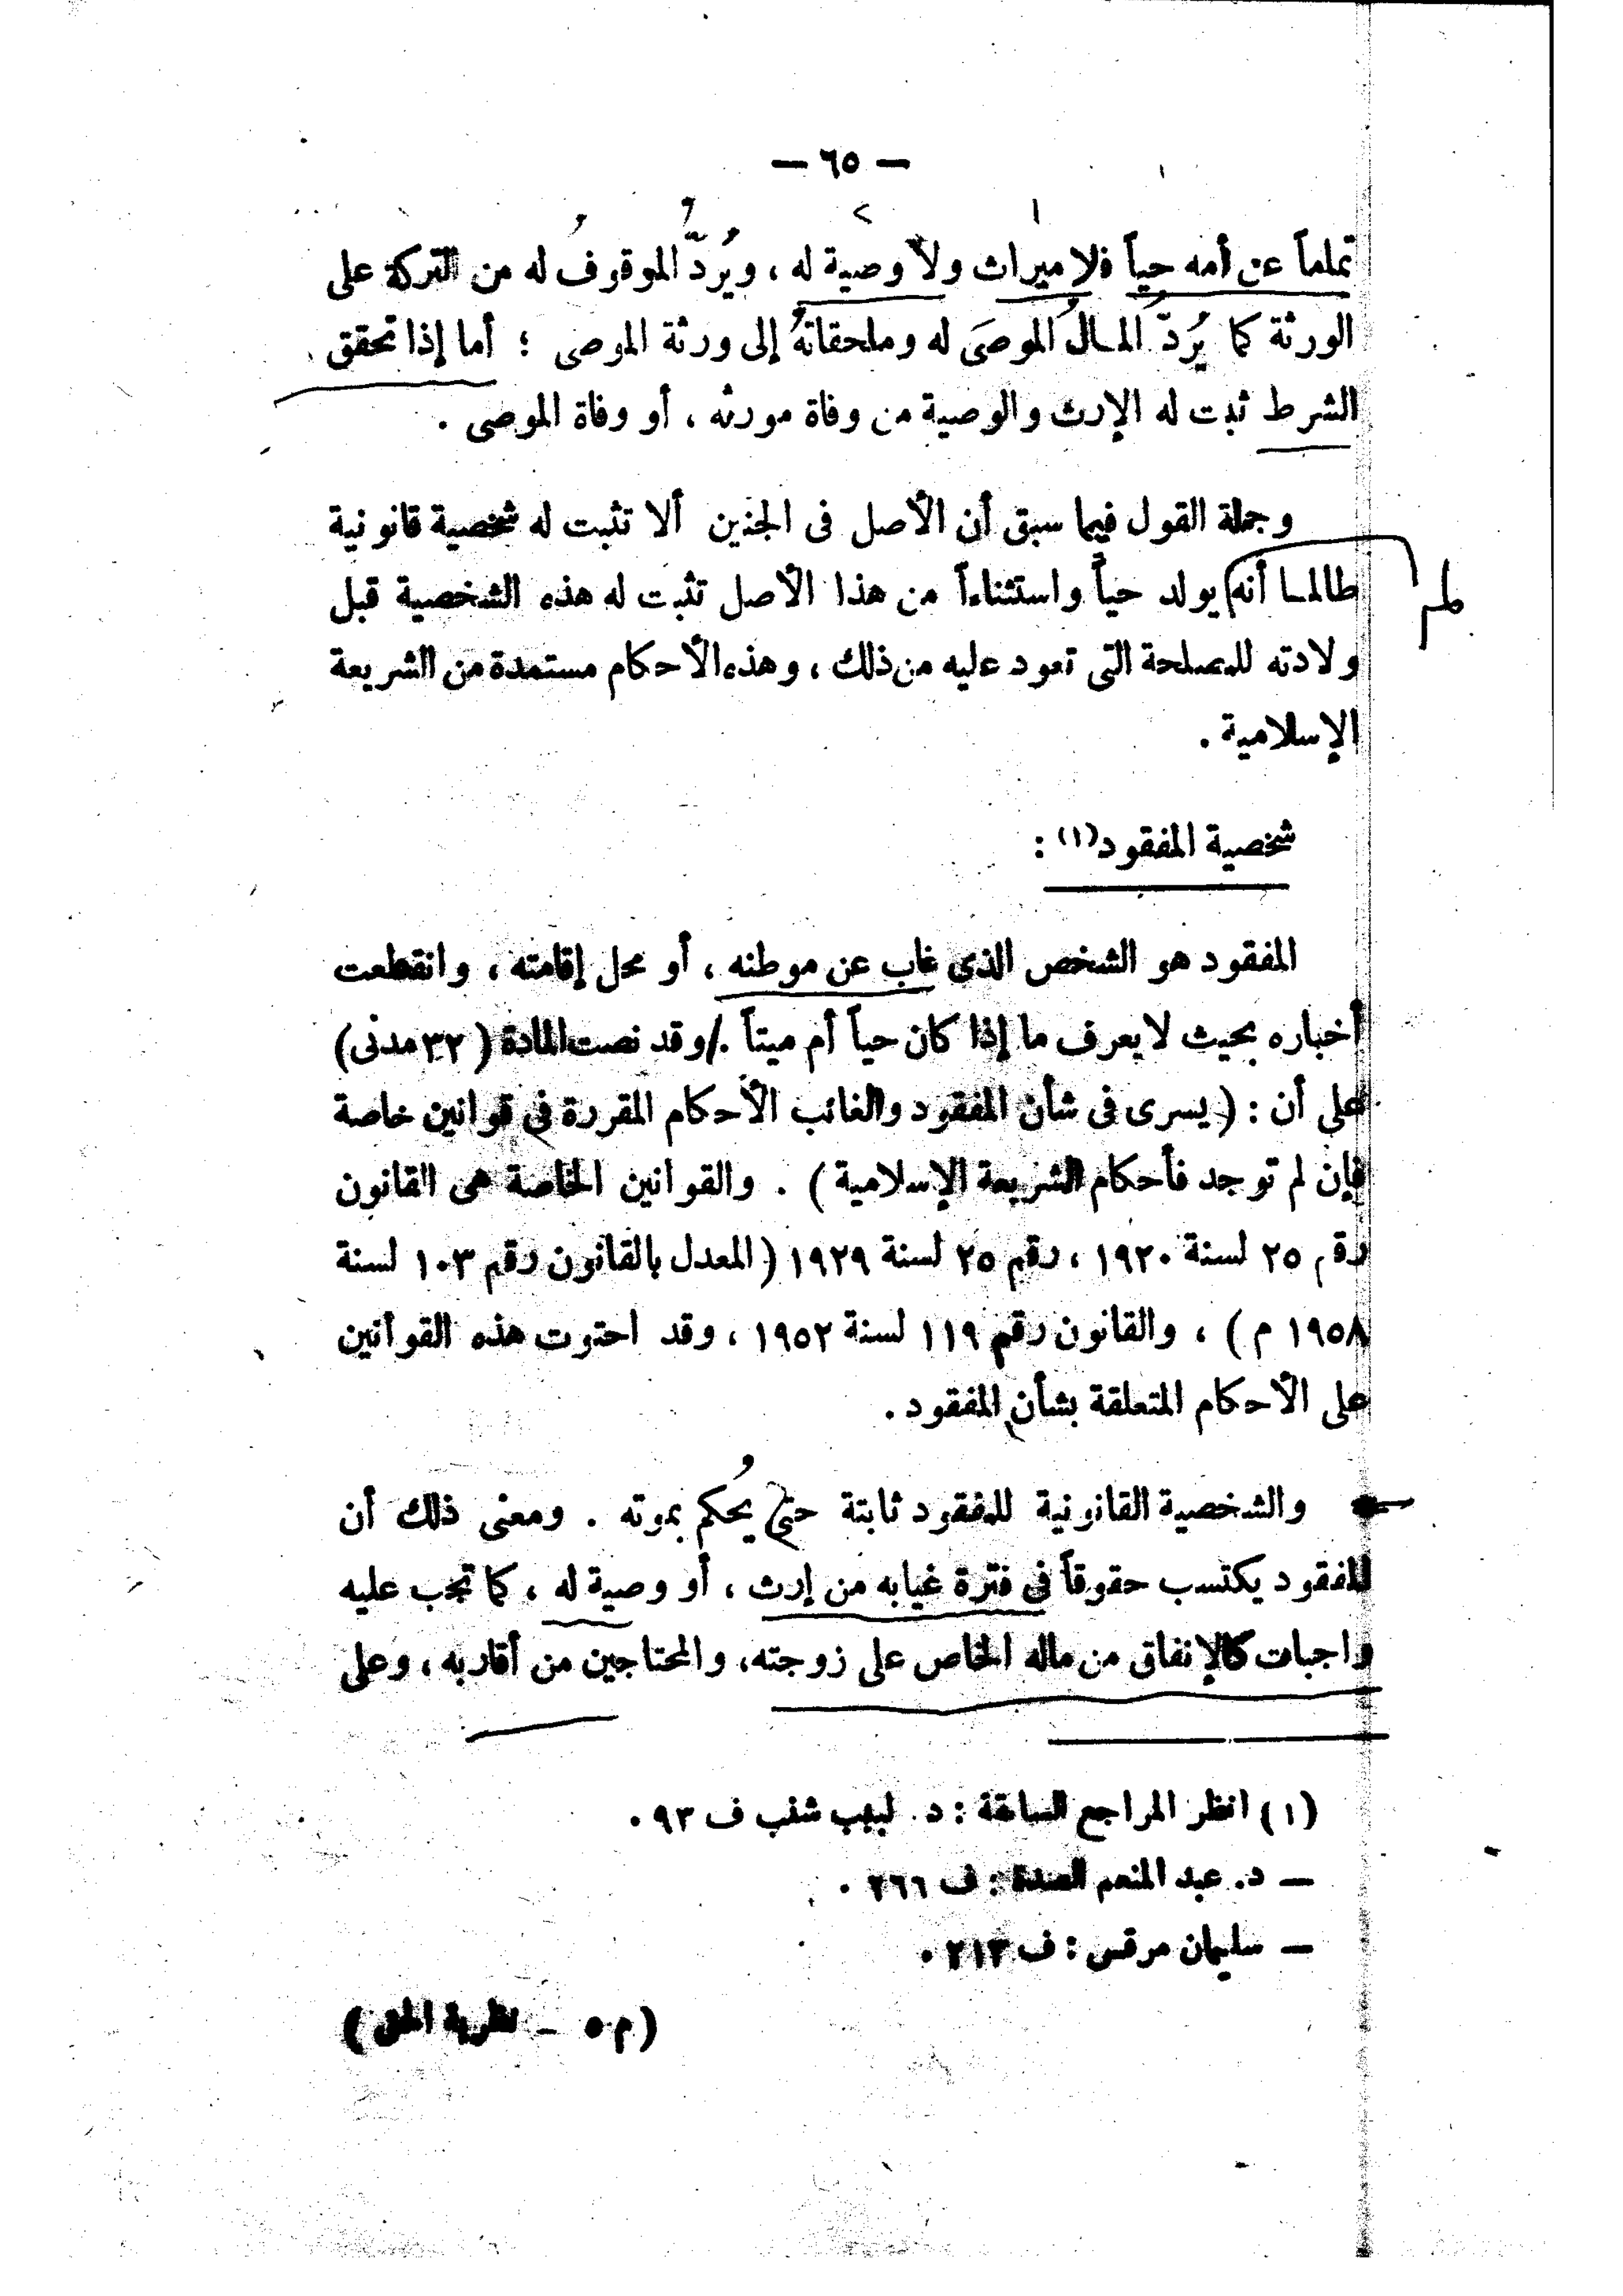 — ٦٥ —
تماماً عن أمه حياً فلا ميراث ولا وصية له ، ويُردّ الموقوفُ له من التركة على
الورثة كما يُردّ المالُ الموصَى له وملحقاتهُ إلى ورثة الموصى ؛ أما إذا تحقق
الشرط ثبت له الإرث والوصية من وفاة مورثه ، أو وفاة الموصى .
وجملة القول فيما سبق أن الأصل فى الجنين ألا تثبت له شخصية قانونية
طالما أنه يولد حياً واستثناءاً من هذا الأصل تثبت له هذه الشخصية قبل
لم
ولادته للمصلحة التى تعود عليه من ذلك ، وهذه الأحكام مستمدة من الشريعة
الإسلامية .
شخصية المفقود(١) :
المفقود هو الشخص الذى غاب عن موطنه ، أو محل إقامته ، وانقطعت
أخباره بحيث لا يعرف ما إذا كان حياً أم ميتاً . / وقد نصت المادة ( ٣٢ مدنى )
على أن : ( يسرى فى شأن المفقود والغائب الأحكام المقررة فى قوانين خاصة
فإن لم توجد فأحكام الشريعة الإسلامية ) . والقوانين الخاصة هى القانون
رقم ٢٥ لسنة ١٩٢٠ ، رقم ٢٥ لسنة ١٩٢٩ ( المعدل بالقانون رقم ١٠٣ لسنة
١٩٥٨ م ) ، والقانون رقم ١١٩ لسنة ١٩٥٢ ، وقد احتوت هذه القوانين
على الأحكام المتعلقة بشأن المفقود .
والشخصية القانونية للمفقود ثابتة حتى يُحكم بموته . ومعنى ذلك أن
للمفقود يكتسب حقوقاً فى فترة غيابه من إرث ، أو وصية له ، كما تجب عليه
واجبات كالإنفاق من ماله الخاص على زوجته، والمحتاجين من أقاربه ، وعلى
(١) انظر المراجع السابقة : د. لبيب شنب ف ٩٣ .
— د. عبد المنعم الصدة : ف ٢٦٦ .
— سليمان مرقس : ف ٢١٣ .
( م ٥ — نظرية الحق )